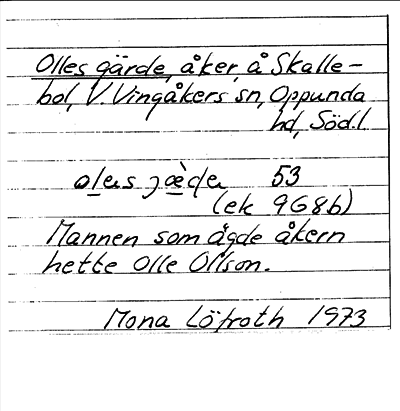 Olles gärde, åker, å Skalle-
bol, V. Vingåkers sn, Oppunda
hd, Södl.
53
(ek 9G8b)
Mannen som ägde åkern
hette Olle Olsson.
Mona Löfroth 1973